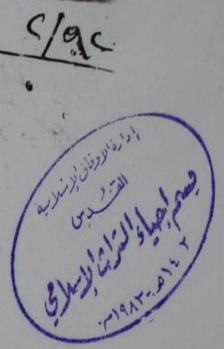 إدارة الأوقاف الإسلامية
القدس
قسم إحياء التراث الإسلامي
١٤٠٢هـ - ١٩٨٢م